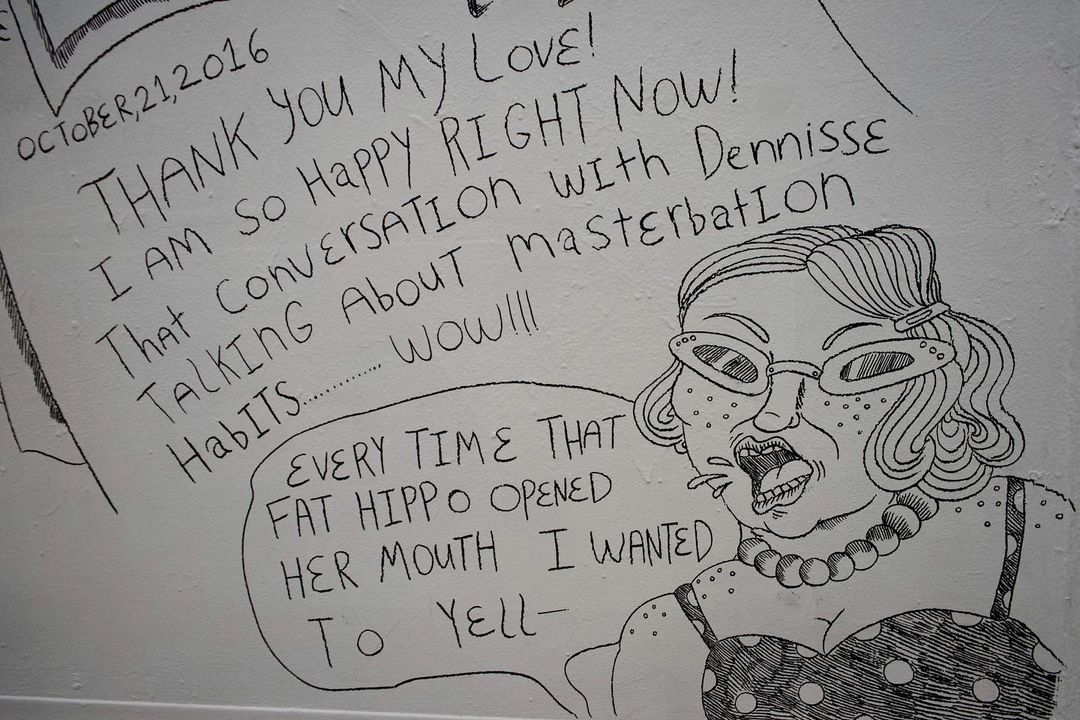 OCTOBER,21,2016
THANK YOU MY LOVE!
I AM SO HAPPY RIGHT NOW!
THAT CONVERSATION WITH DENNISSE
TALKING ABOUT MASTERBATION
HABITS.............. WOW!!!
EVERY TIME THAT
FAT HIPPO OPENED
HER MOUTH I WANTED
TO YELL—